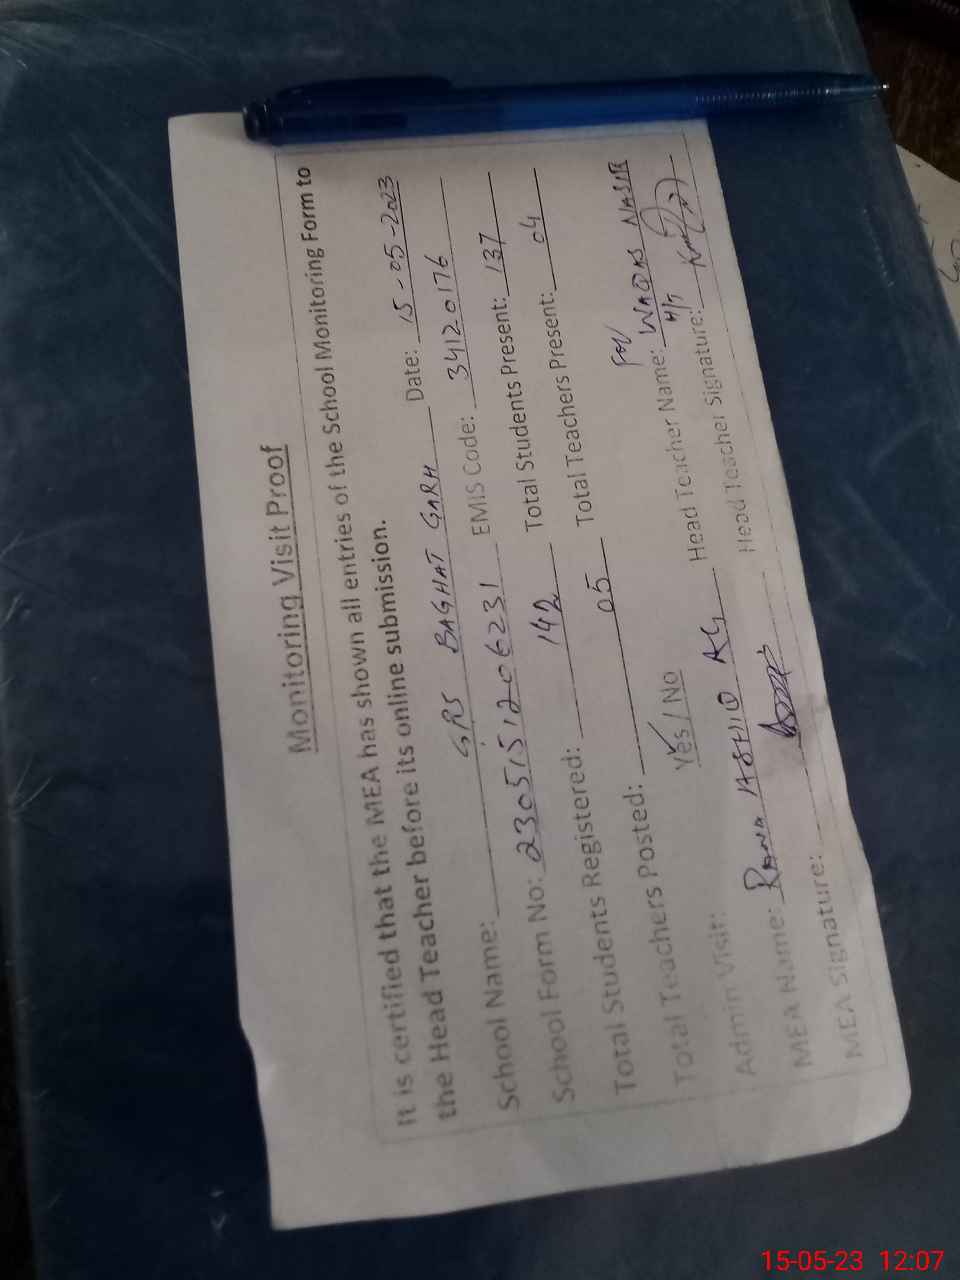 Monitoring Visit Proof
It is certified that the MEA has shown all entries of the School Monitoring Form to
the Head Teacher before its online submission.
School Name: GPS BAGHAT GARH Date: 15-05-2023
School Form No: 2305151206231 EMIS Code: 34120176
Total Students Registered: 142 Total Students Present: 137
Total Teachers Posted: 05 Total Teachers Present: 04
Admin Visit: Yes / No Head Teacher Name: WAQAS NASIR
for
MEA Name: Rana Head Teacher Signature:
MEA Signature:
15-05-23 12:07